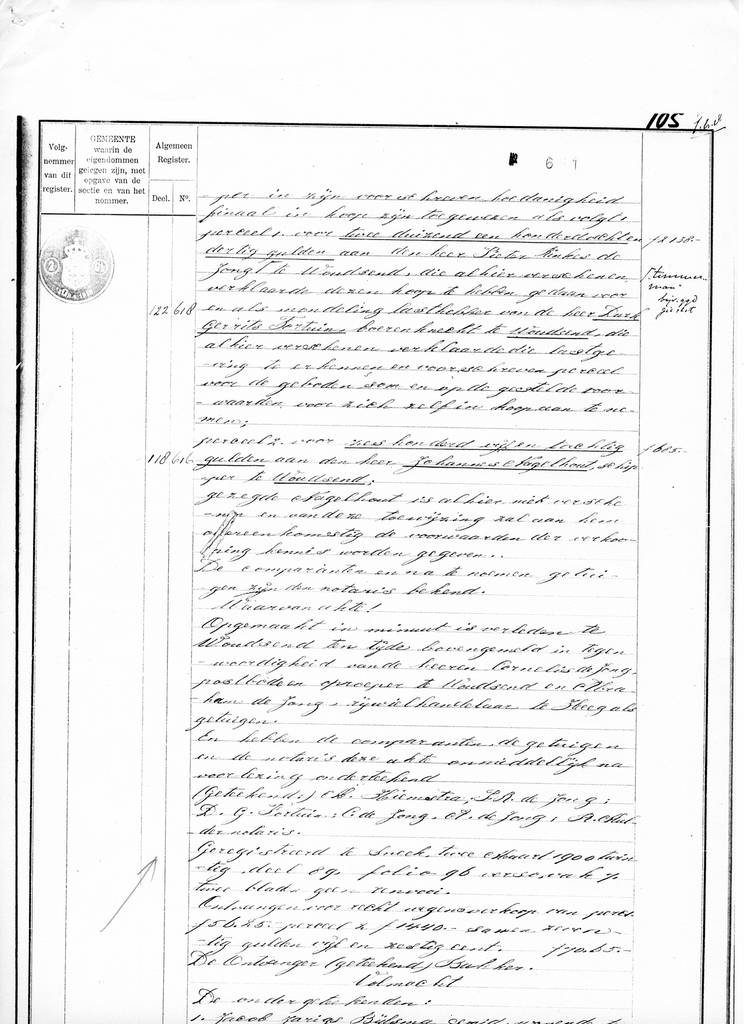 105
Volg-
nommer
van dit
register.
GEMEENTE
waarin de
eigendommen
gelegen zijn, met
opgave van de
sectie en van het
nommer.
Algemeen
Register.
Deel. No.
- per in zijn voorschreven hoedanigheid
finaal in koop zijn toegewezen als volgt:
perceel 1. voor twee duizend een honderd achten
dertig gulden aan den heer Pieter Rinkes de
f 2138.-
Jong te Woudsend, die alhier verschenen
verklaarde dezen koop te hebben gedaan voor
en als mondeling lasthebber van de heer Durk
122 618
Gerrits Fortuin, boerenknecht te Woudsend, die
alhier verschenen verklaarde die lastge-
- ving te erkennen en voorschreven perceel
voor de geboden som en op de gestelde voor-
- waarden voor zich zelf in koop aan te ne-
men;
perceel 2. voor zes honderd vijf en tachtig
f 685.-
118 616
gulden aan den heer Johannes Nagelhout, schip-
per te Woudsend;
gezegde Nagelhout is alhier niet versche-
- nen en van deze toewijzing zal aan hem
overeenkomstig de voorwaarden der verkoo-
ping kennis worden gegeven.
De comparanten en na te noemen getui-
gen zijn den notaris bekend.
Waarvan akte!
Opgemaakt in minuut is verleden te
Woudsend ten tijde bovengemeld in tegen
- woordigheid van de heeren Cornelis de Jong
postbode en oproeper te Woudsend en Abra-
ham de Jong, rijwielhandelaar te Heeg als
getuigen.
En hebben de comparanten, de getuigen
en de notaris deze akte onmiddellijk na
voorlezing onderteekend
(geteekend:) Hiemstra, P. R. de Jong;
D. G. Fortuin; C. de Jong. A. de Jong; R. Mul-
der notaris.
Geregistreerd te Sneek, twee Maart 1900 twin
- tig, deel 89. folio 96 verso, vak 7.
twee blad. geen renvooi.
Ontvangen voor recht wegens verkoop van perc. 1
f 56.25. perceel 2 f 14.40 - samen zeven-
- tig gulden vijf en zestig cent. f 70.65.-
De Ontvanger (geteekend) Bakker.
Volmacht
De ondergeteekenden:
1. Jacob Jarigs Bijlsma, smid, wonende te